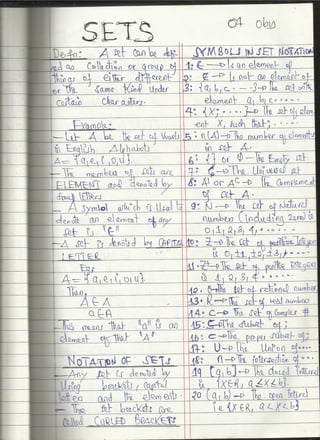 SETS
04 Obj
Defn: A set can be defi-
ned as Collection or group of
things of either different
or the same kind under
certain characters.
Example:
- Let A be the set of Vowels
in English Alphabets
A = {a, e, i, o, u}
- The members of sets are
ELEMENT and denoted by
small letters
- A symbol which is used to
denote an element of any
set is "∈"
- A set is denoted by CAPITAL
LETTER
Eg:
A = {a, e, i, o, u}
Then,
a ∈ A
- This means that "a" is an
element of that "A"
NOTATION OF SETS
- Any set is denoted by
Using brackets, capital
letters and the elements.
- The set brackets are
called CURLED BRACKETS
SYMBOLS IN SET NOTATION
1: ∈ → is an element of
2: ∉ → is not an element of
3: {a, b, c - - -} → The set with
element a, b, c .....
4: {x: .....} → The set of elem
ent x, such that; .....
5: n(A) → The number of elements
in set A.
6: { } or Ø → The Empty set
7: → The Universal set
8: A' or Aᶜ → The Complement
of set A.
9: N → The set of Natural
numbers (including zero) is
0, 1, 2, 3, 4, .....
10: Z → The set of Integers
is 0, ±1, ±2, ±3, .....
11: Z⁺ → The set of positive integers
is 1, 2, 3, 4 .....
12: → The set of rational number
13: R → The set of real number
14: C → The set of Complex #
15: ⊆ → The subset of;
16: ⊂ → The proper subset of;
17: U → The Union of ....
18: ∩ → The intersection of ...
19 [a, b] → The closed interval
is {x∈R, a≤x≤b}
20 (a, b) → The open interval
ie {x∈R, a<x<b}